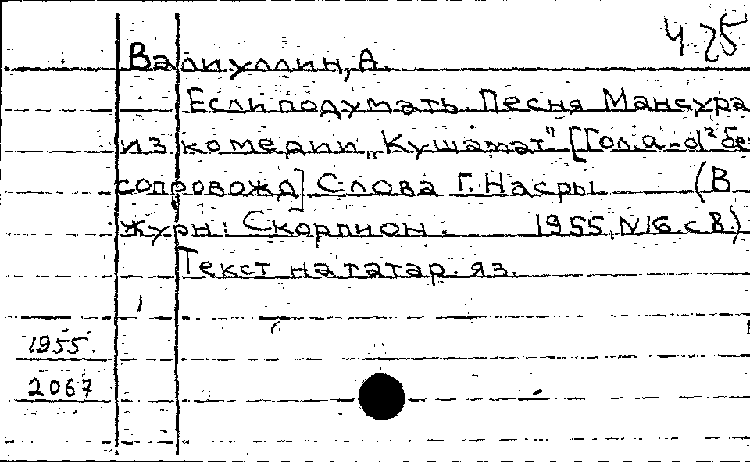 4.25
Валиуллин, А.
Если подумать. Песня Мансура
из комедии „Кушамат" [Гол. а-d² бе
сопровожд] Слова Г. Насры (В
журн: Скорпион. 1955, N16. с 8.)
Текст на татар. яз.
1955.
2067